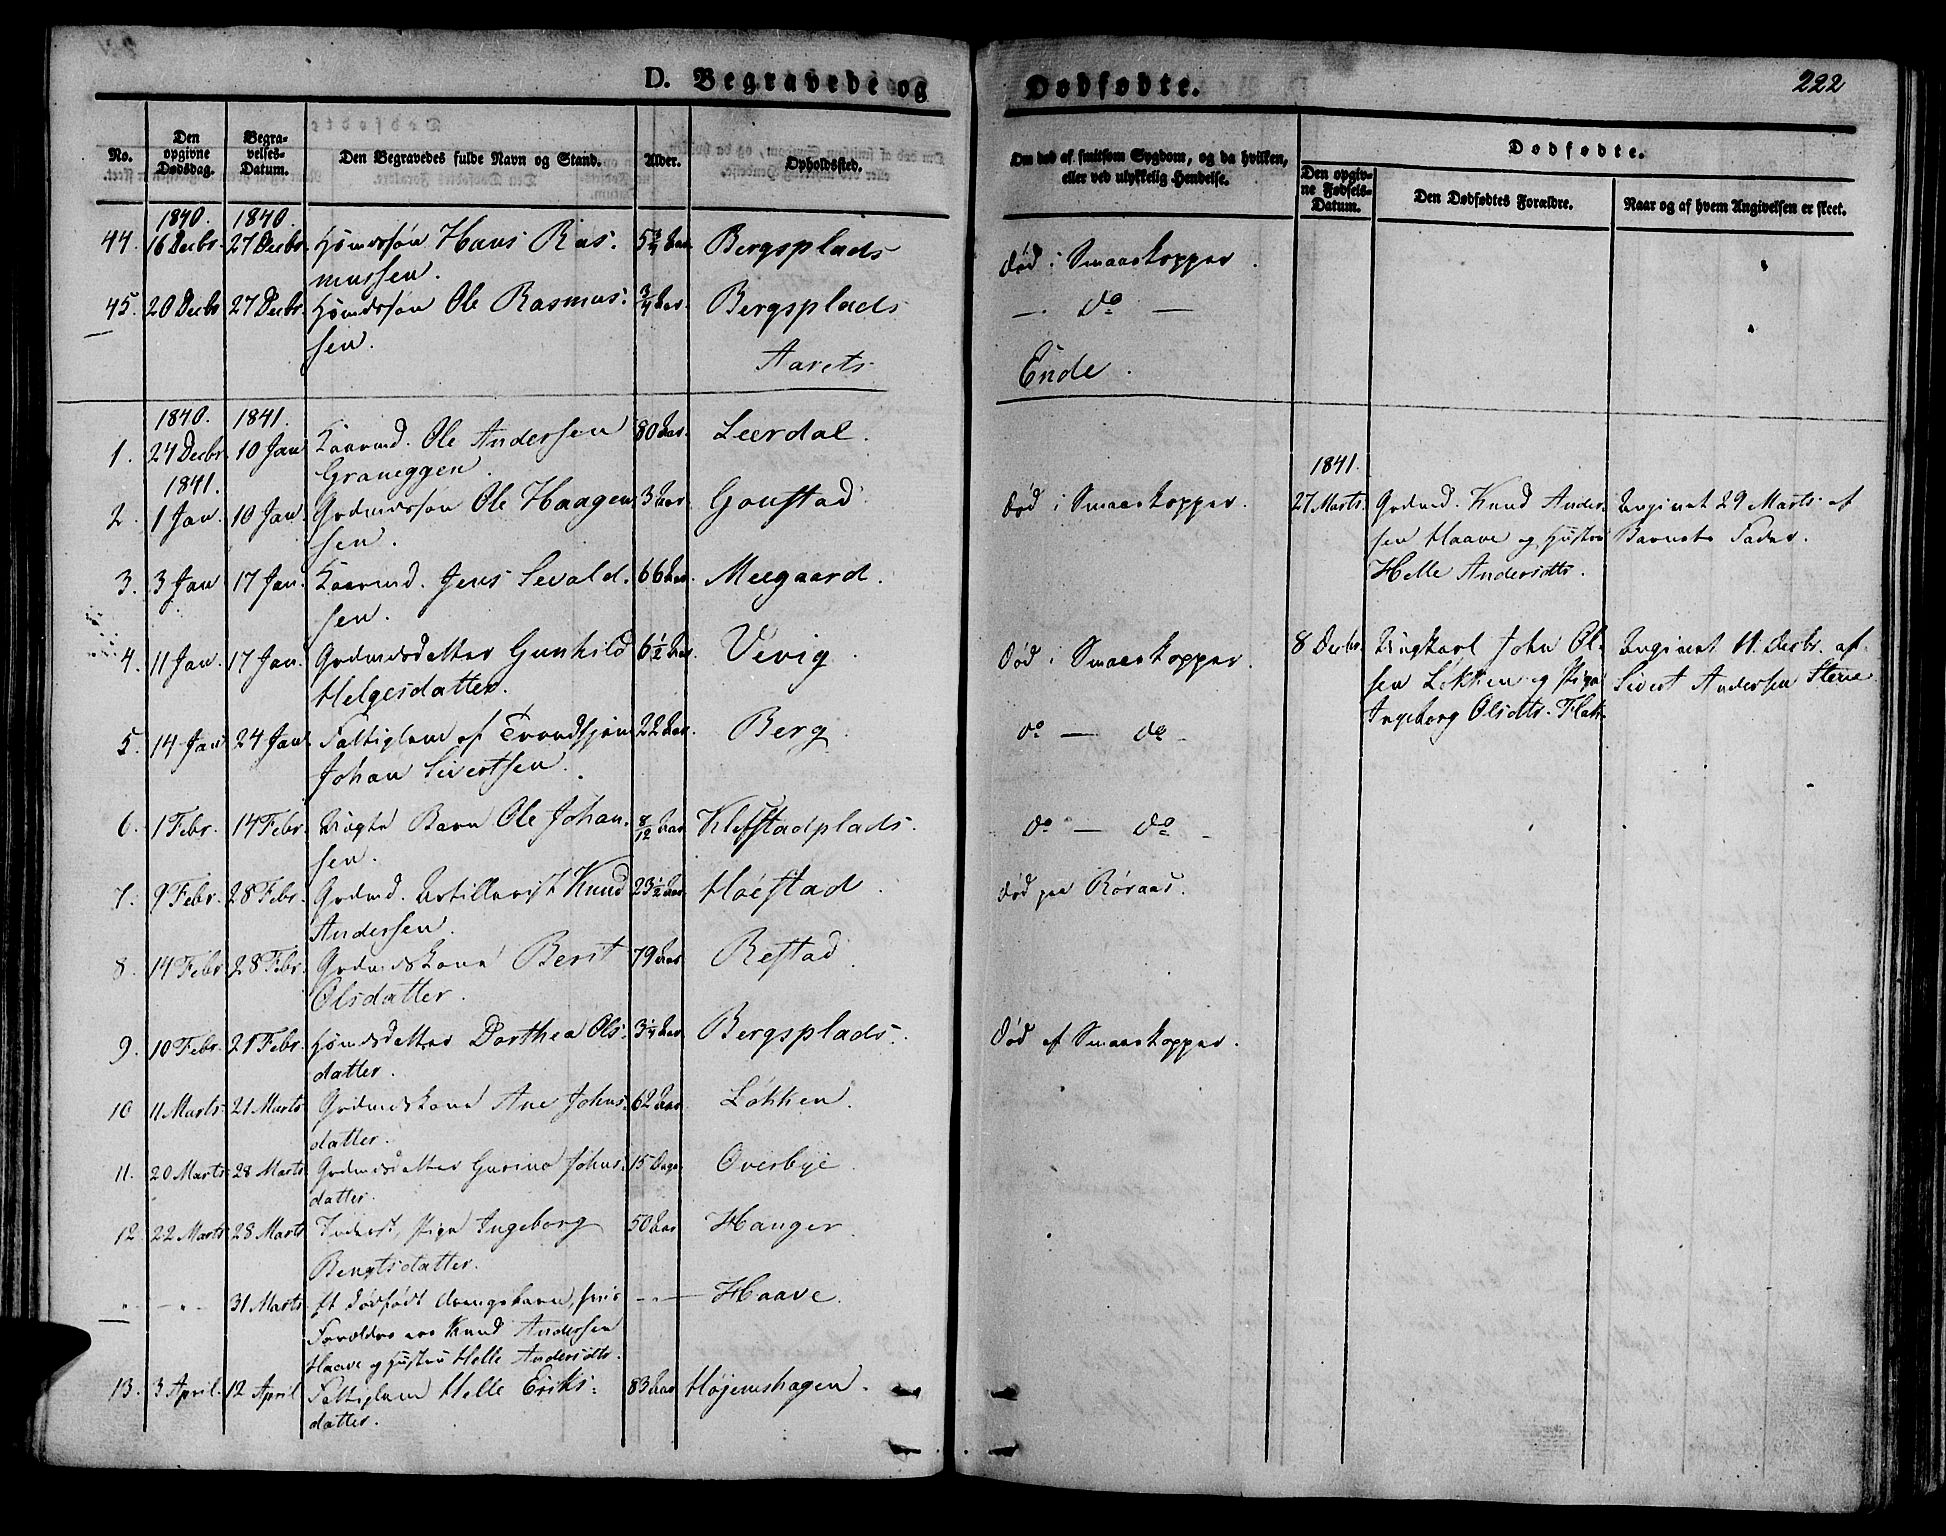 D. Begravede og Dødfødte.
222
No.
Den opgivne Dødsdag.
Begravelses-Datum.
Den Begravedes fulde Navn og Stand.
Alder.
Opholdssted.
Om død af smitsom Sygdom, og da hvilken,
eller ved ulykkelig Hendelse.
Dødfødte.
Den opgivne Fødsels-Datum.
Den Dødfødtes Forældre.
Naar og af hvem Angivelsen er skeet.
1840. 1840.
44. 16 Decbr. 27 Decbr. Huusmdssøn Hans Ras- 5 3/4 Aar. Bergsplads død i Smaaekopper.
mussen.
45. 20 Decbr 27 Decbr. Huusmdssøn Ole Rasmus- 3/4 Aar. Bergsplads —. do —
sen.
Aarets Ende.
1840. 1841.
1. 24 Decbr. 10 Jan Kaarmd. Ole Andersen 80 Aar. Leerdal.
Graneggen.
1841. 1841.
2. 1 Jan. 10 Jan. Grdmdssøn Ole Haagen- 3 Aar. Gonstad død i Smaaekopper. 27 Marts. Grdmd. Knud Ander- Angivet 29 Marts af
sen. sen Haave og Hustru Barnets Fader.
Helle Andersdtr.
3. 3 Jan 17 Jan. Kaarmd. Jens Sivald- 66 Aar. Meegaard.
sen.
4. 11 Jan. 17 Jan. Grdmdsdatter Gunhild 6 1/2 Aar. Vevig. død i Smaaekopper. 8 Decbr. Ungkarl John Ol- Angivet 11. Decbr. af
Helgesdatter. sen Løkken og Pige Sivert Andersen Steene
Ingeborg Olsdtr. Flatt
5. 14 Jan 24 Jan. Fattiglem af Trondhjem 22 Aar. Berg. do — do -
Johan Sivertsen.
6. 1 Febr. 14 Febr. Uægte Barn Ole Johan- 8/12 Aar Klefstadplads. do — do -
sen.
7. 9 Febr. 28 Febr. Grdmd. Artillerist Knud 23 1/2 Aar. Høiestad. død paa Røraas.
Andersen.
8. 14 Febr 28 Febr. Grdmdskone Berit 79 Aar. Restad.
Olsdatter.
9. 10 Febr. 21 Febr. Huusmdsdatter Dorthea Ols- 3 1/4 Aar. Bergsplads. Død af Smaaekopper.
datter.
10 11 Marts 21 Marts Grdmdskone Ane Johns- 62 Aar. Løkken.
datter.
11. 20 Marts 28 Marts Grdmdsdatter Gurine Johns- 15 Dage Overbye.
datter.
12. 22 Marts 28 Marts Inderst, Pige Ingeborg 50 Aar Hanger.
Bengtsdatter.
31 Marts Et dødfødt Drengebarn, hvis — Haave.
Forældre ere Knud Andersen
Haave og Hustru Helle Andersdtr.
13. 3 April. 12 April Fattiglem Helle Eriks- 83 Aar Højemshagen.
datter.